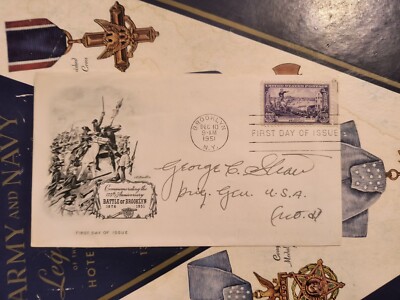 ARMY AND NAVY
Leg
HOTE
UNITED STATES POSTAGE
BROOKLYN
DEC 10
9-AM
1951
N.Y.
FIRST DAY OF ISSUE
George C. Shaw
Brig. Gen. U.S.A.
Commemorating the
175th Anniversary
BATTLE OF BROOKLYN
1776 1951
FIRST DAY OF ISSUE